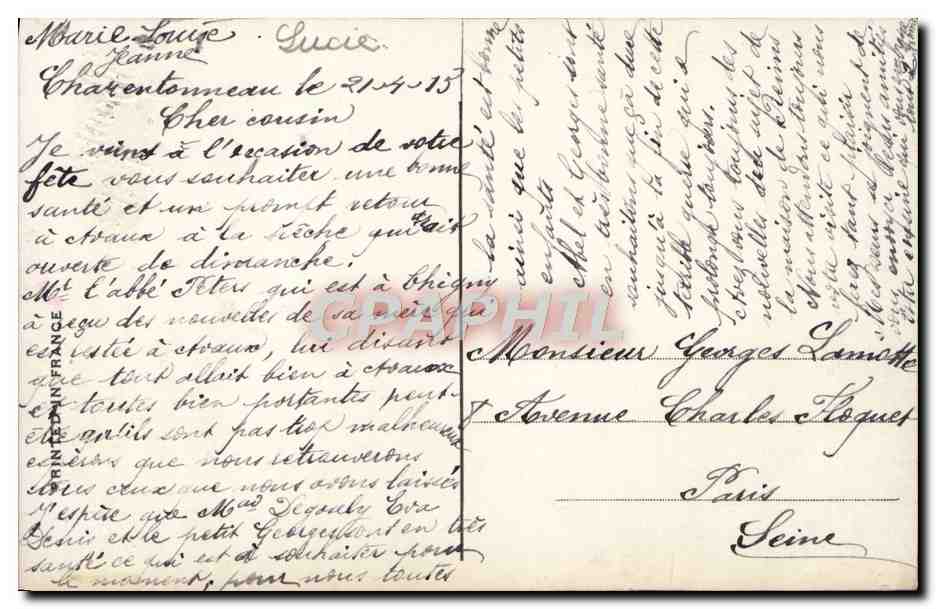 Marie Louise
Jeanne
Lucie
Charentonneau le 21-4-15
Cher cousin
Je viens à l'occasion de votre
fête vous souhaiter une bonne
santé et un prompt retour
à Avaux à la pêche qui était
ouverte de dimanche.
Mr l'abbé Peters qui est à Chigny
à reçu des nouvelles de sa mère qui
est restée à Avaux, lui disant
que tout allait bien à Avaux
et toutes bien portantes peut-
être qu'ils sont pas trop malheureux
espérons que nous retrouverons
tous ceux que nous avons laissés
J'espère que Mad Degouly Eva
Denis et le petit Georges sont en très
santé ce qui est à souhaiter pour
le moment, pour nous toutes
la santé est bonne
ainsi que les petits
enfants
Abel et George sont
en très bonne santé
souhaitons que ça dure
jusqu'à la fin de cette
guerre qui se
prolonge toujours.
Avez vous toujours des
nouvelles au sujet de
la maison de Reims
Nous attendrons toujours
votre visite ce qui nous
ferez tant plaisir
Mes sœurs se joignent de
vous envoyer leurs amitiés
Monsieur Georges Lamotte
8 Avenue Charles Floquet
Paris
Seine
PRINTED IN FRANCE
CPAPHIL